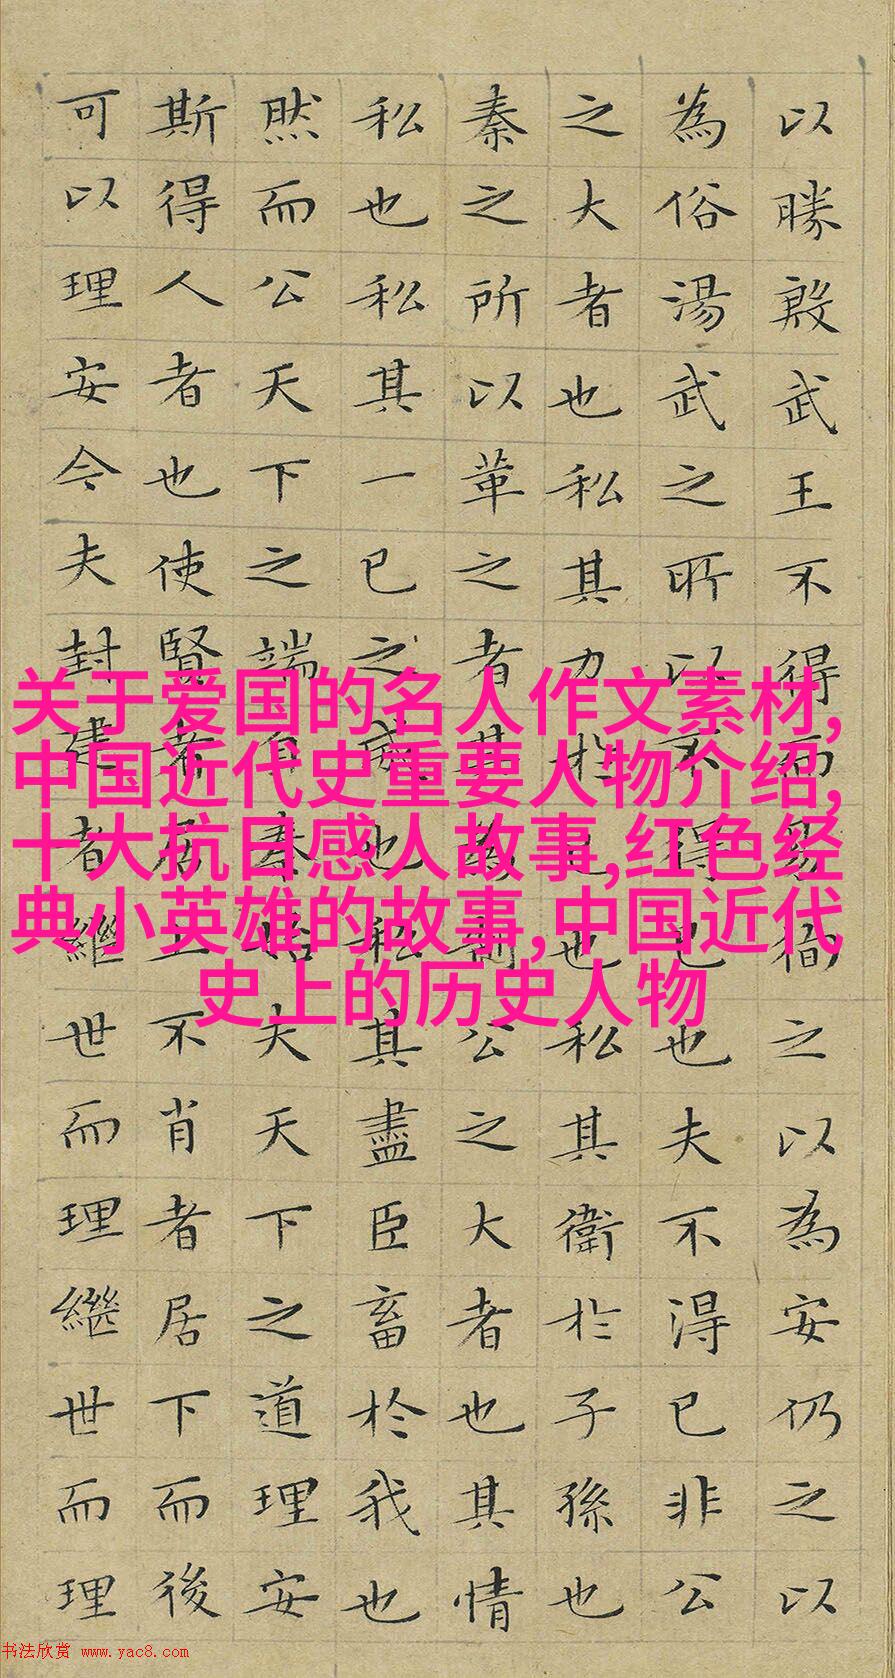 以勝殷武王不得而易徇之以為安仍之以
為俗湯武之所以不得已也夫不得已非公
之大者也私其力於己也私其衛於子孫也
秦之所以革之者其為制公之大者也其情
私也私其一己之威也私其盡臣畜於我也
然而公天下之端自秦始夫天下之道理安
斯得人者也使賢者居上不肖者居下而後
可以理安今夫封建者繼世而理繼世而理
关于爱国的名人作文素材,
中国近代史重要人物介绍,
十大抗日感人故事,红色经
典小英雄的故事,中国近代
史上的历史人物
书法欣赏 www.yac8.com